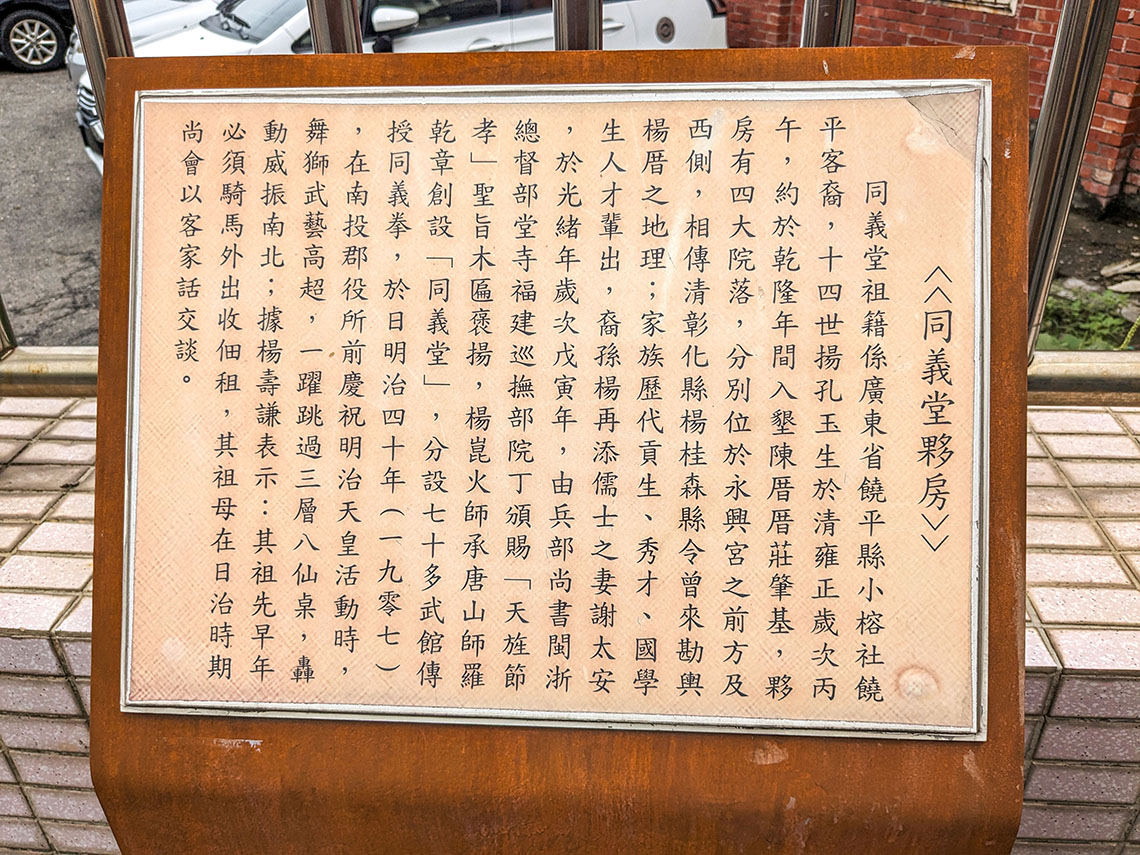 《同義堂夥房》
同義堂祖籍係廣東省饒平縣小榕社饒
平客裔，十四世揚孔玉生於清雍正歲次丙
午，約於乾隆年間入墾陳厝厝莊肇基，夥
房有四大院落，分別位於永興宮之前方及
西側，相傳清彰化縣楊桂森縣令曾來勘輿
楊厝之地理；家族歷代貢生、秀才、國學
生人才輩出，裔孫楊再添儒士之妻謝太安
，於光緒年歲次戊寅年，由兵部尚書閩浙
總督部堂寺福建巡撫部院丁頒賜「天旌節
孝」聖旨木匾褒揚，楊崑火師承唐山師羅
乾章創設「同義堂」，分設七十多武館傳
授同義拳，於日明治四十年（一九零七）
，在南投郡役所前慶祝明治天皇活動時，
舞獅武藝高超，一躍跳過三層八仙桌，轟
動威振南北；據楊壽謙表示：其祖先早年
必須騎馬外出收佃租，其祖母在日治時期
尚會以客家話交談。